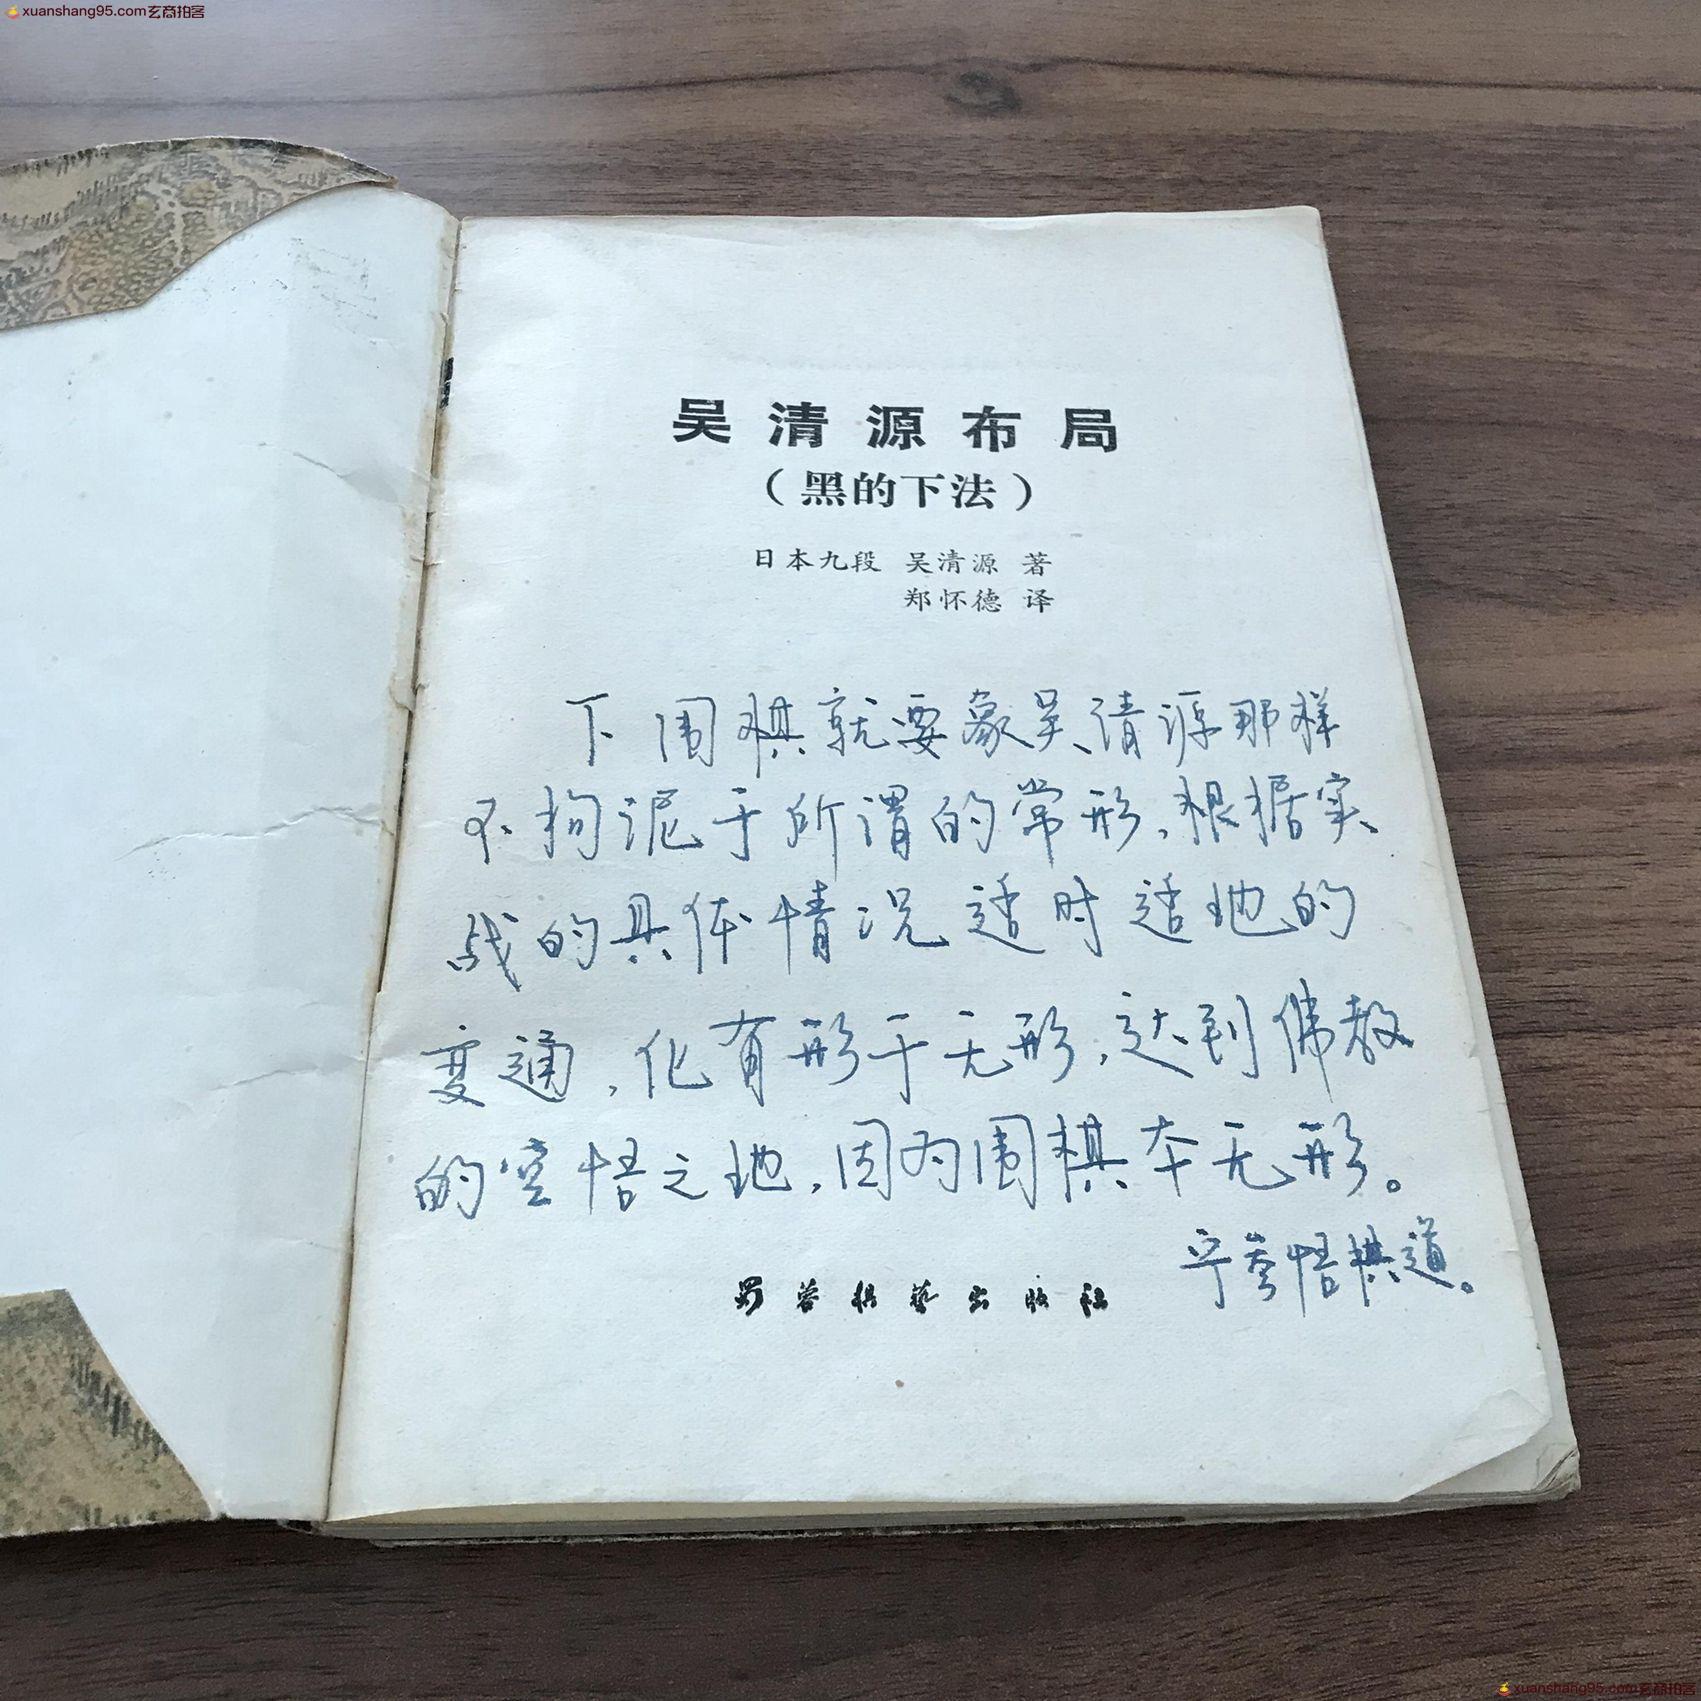 xuanshang95.com玄商拍客
吴清源布局
（黑的下法）
日本九段 吴清源 著
郑怀德 译
下围棋就要象吴清源那样
不拘泥于所谓的常形，根据实
战的具体情况适时适地的
变通，化有形于无形，达到佛教
的空悟之地，因为围棋本无形。
宁参悟棋道。
蜀蓉棋艺出版社
xuanshang95.com玄商拍客